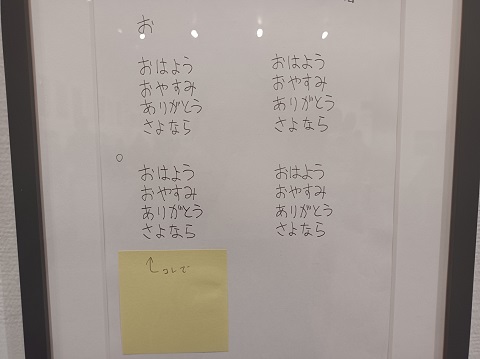 お
おはよう
おやすみ
ありがとう
さよなら
おはよう
おやすみ
ありがとう
さよなら
○
おはよう
おやすみ
ありがとう
さよなら
おはよう
おやすみ
ありがとう
さよなら
↑コレで